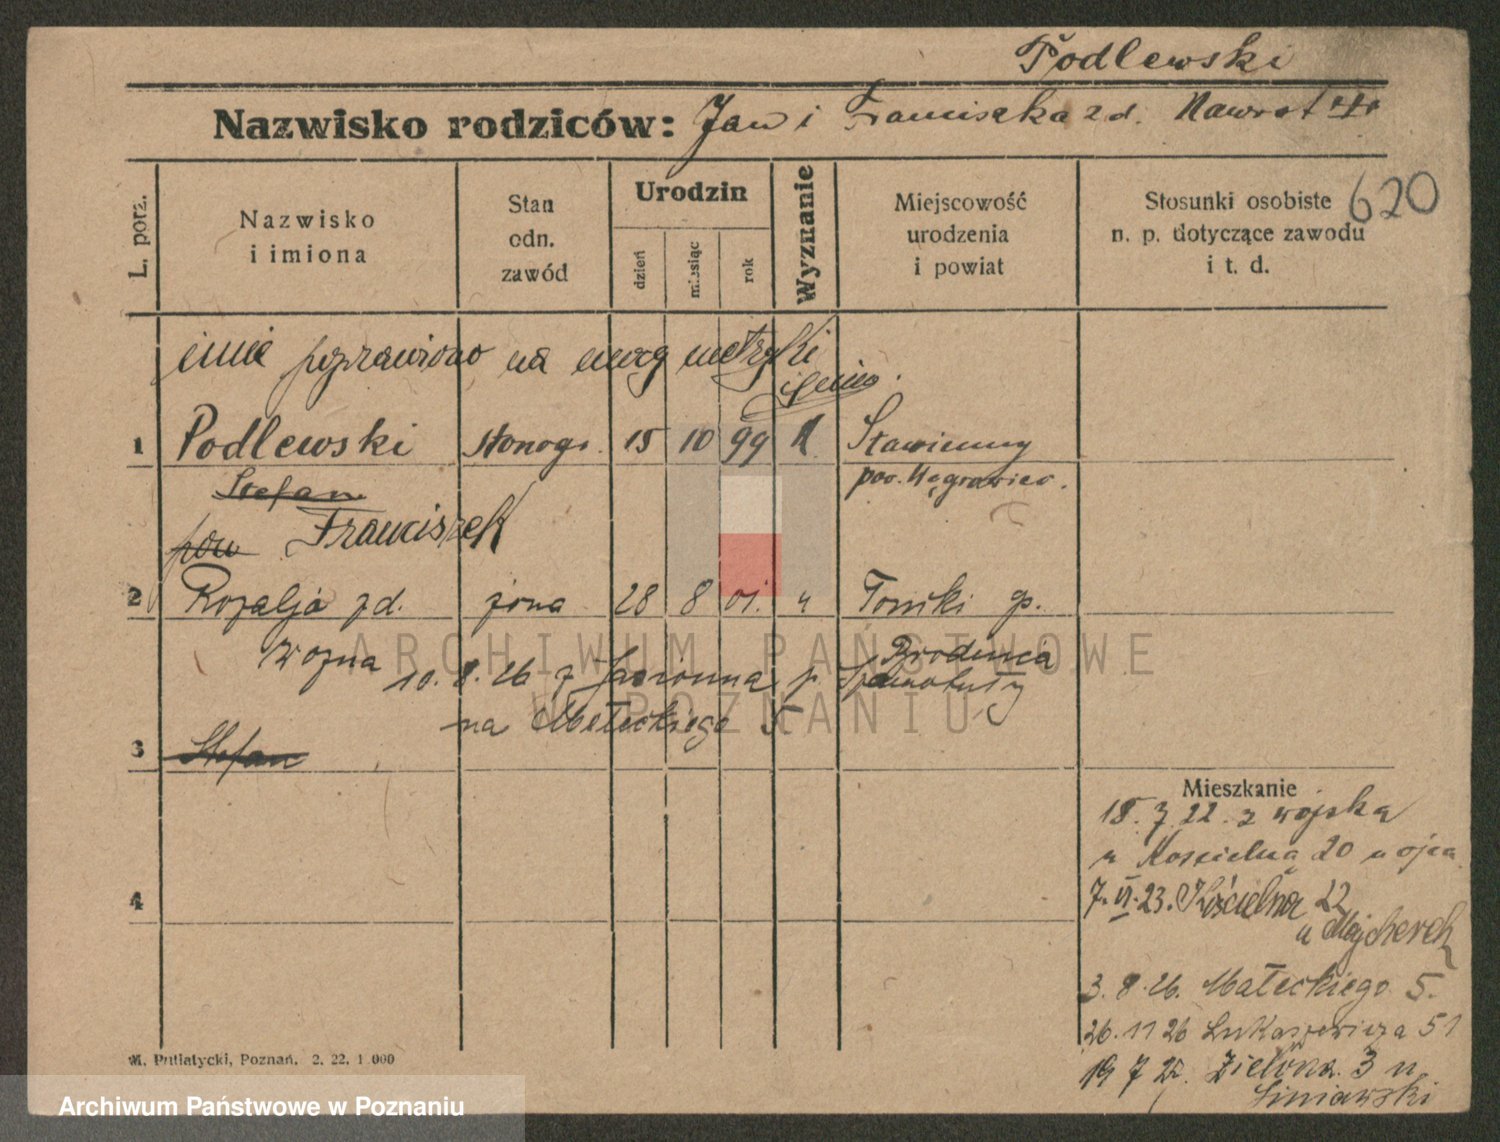 Podlewski
Nazwisko rodziców: Jan i Franciszka z d. Nawrot
L. porz.
Nazwisko
i imiona
Stan
odn.
zawód
Urodzin
dzień
miesiąc
rok
Wyznanie
Miejscowość
urodzenia
i powiat
Stosunki osobiste
n. p. dotyczące zawodu
i t. d.
620
imię poprawiono na mocy metryki
1 Podlewski 15 10 99 Stawiany
Stefan pow. Wągrowiec.
pow Franciszek
2 Rozalja z d. żona 28 8 01. Tomki p.
Wozna Brodnica
10. 8. 26 z p. Szamotuły
na Małeckiego 5
3 Stefan
4
Mieszkanie
18. 7. 22. z wojska
Kościelna 20 u ojca
7. VI. 23. Kościelna 22
u Majcherek
3. 8. 26. Małeckiego 5.
26. 11 26 Łukaszewicza 51
19 7 27. Zielona 3 u
Siniawski
M. Putiatycki, Poznań. 2. 22. 1 000
ARCHIWUM PAŃSTWOWE
W POZNANIU
Archiwum Państwowe w Poznaniu